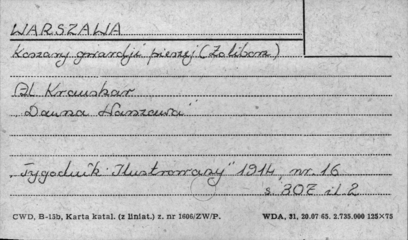 WARSZAWA
Koszary gwardji pieszej (Żoliborz)
Al Kraushar
„Dawna Warszawa"
„Tygodnik Ilustrowany" 1914, nr. 16
s 307 il. 2
CWD, B-15b, Karta katal. (z liniat.) z. nr 1606/ZW/P. WDA, 31, 20.07 65. 2.735.000 125×75